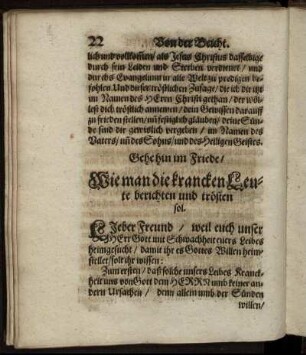 22 Von der Beicht.
lich und vollkom̃en / als Jesus Christus dasselbige
durch sein Leiden und Sterben verdienet / und
durchs Evangelium in alle Welt zu predigen be-
fohlen. Und dieser tröstlichen Zusage / die ich dir itzt
im Namen des HErrn Christi gethan / der wöl-
lest dich tröstlich annemen / dein Gewissen darauff
zu frieden stellen / un̄ festiglich gläuben / deine Sün-
de sind dir gewislich vergeben / im Namen des
Vaters / un̄ des Sohns / und des Heiligen Geistes.
Gehe hin im Friede /
Wie man die krancken Leu-
te berichten und trösten
sol.
LJeber Freund / weil euch unser
HErr Gott mit Schwachheit euers Leibes
heimgesucht / damit ihr es Gottes Willen heim-
stellet / solt ihr wissen:
Zum ersten / daß solche unsers Leibes Kranck-
heit uns von Gott dem HERRN umb keiner an-
dern Ursachen / denn allein umb der Sünden
willen /